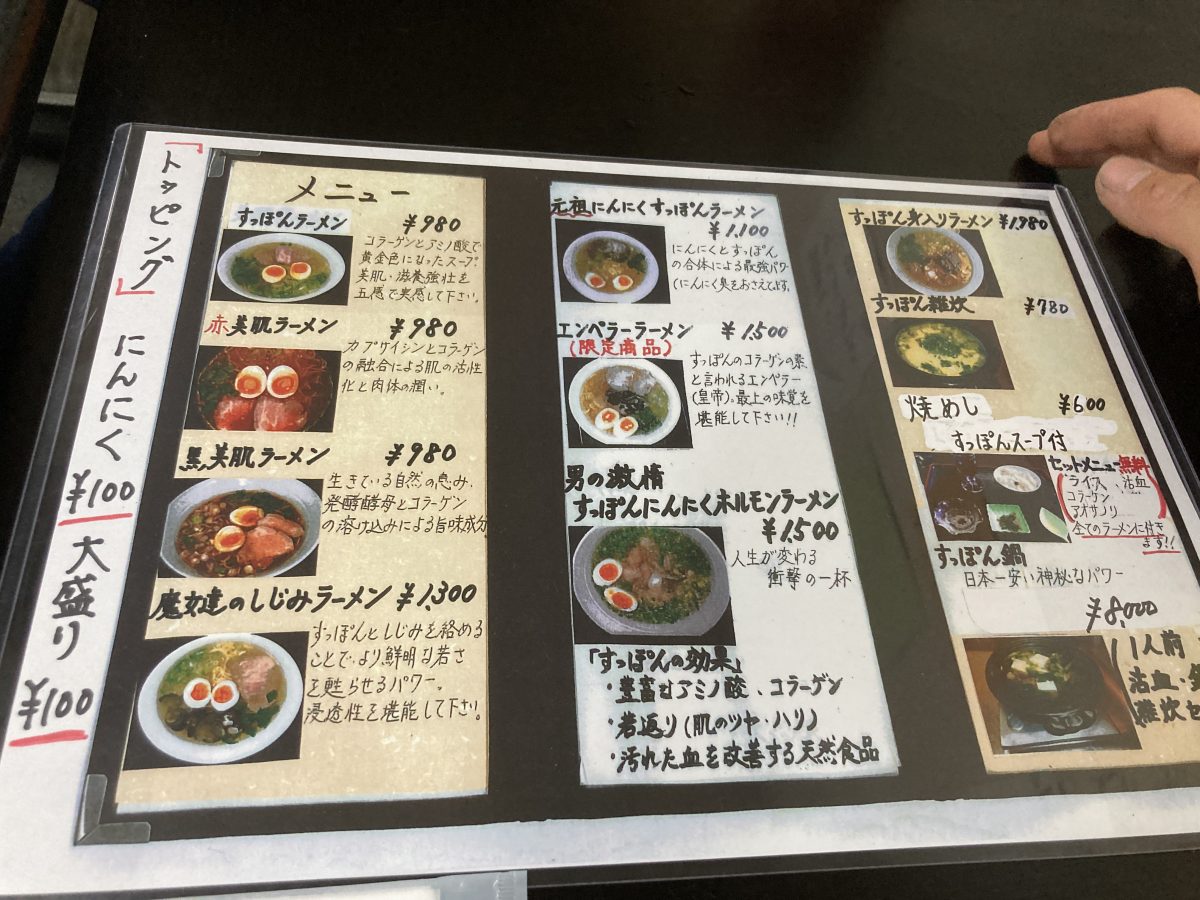 「トッピング」 にんにく ¥100 大盛り ¥100
メニュー
すっぽんラーメン ¥980
コラーゲンとアミノ酸で
黄金色になったスープ。
美肌・滋養強壮を
五感で実感して下さい。
赤美肌ラーメン ¥980
カプサイシンとコラーゲン
の融合による肌の活性
化と肉体の潤い。
黒美肌ラーメン ¥980
生きている自然の恵み、
発酵酵母とコラーゲン
の溶け込みによる旨味成分
魔女達のしじみラーメン ¥1,300
すっぽんとしじみを絡める
ことで、より鮮明な若さ
を甦らせるパワー。
浸透性を堪能して下さい。
元祖にんにくすっぽんラーメン
¥1,100
にんにくとすっぽん
の合体による最強パワー
(にんにく臭をおさえてます。
エンペラーラーメン ¥1,500
(限定商品)
すっぽんのコラーゲンの素
と言われるエンペラー
(皇帝)。最上の味覚を
堪能して下さい!!
男の激情
すっぽんにんにくホルモンラーメン
¥1,500
人生が変わる
衝撃の一杯
「すっぽんの効果」
・豊富なアミノ酸、コラーゲン
・若返り(肌のツヤ・ハリ)
・汚れた血を改善する天然食品
すっぽん身入りラーメン ¥1,980
すっぽん雑炊 ¥780
焼めし ¥600
すっぽんスープ付
セットメニュー無料
ライス、活血
コラーゲン
アオサノリ
全てのラーメンに付き
ます!!
すっぽん鍋
日本一安い神秘なパワー
¥8,000
1人前
活血・
雑炊セ